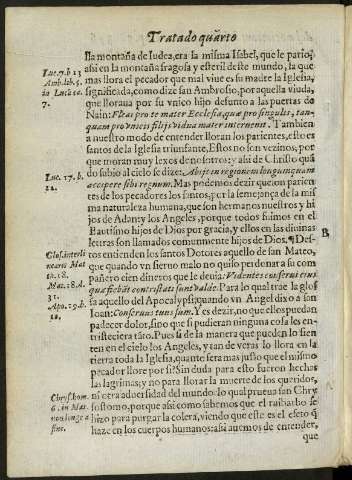 Tratado quarto
lla montaña de Iudea, era la misma Isabel, que le pario;
Luc. 7. b 13
assi en la montaña fragosa y esteril deste mundo, la que
Amb. lib. 5.
mas llora el pecador que mal viue es su madre la Iglesia,
in Luc. ca.
significada, como dize san Ambrosio, por aquella viuda,
7.
que lloraua por su vnico hijo defunto a las puertas de
Nain: Fleat pro te mater Ecclesia, quæ pro singulis, tan-
quam pro vnicis filijs vidua mater interuenit. Tambien
a nuestro modo de entender lloran los parientes, esto es
santos de la Iglesia triunfante, Estos no son vezinos, por
que moran muy lexos de nosotros: y assi de Christo quã
do subio al cielo se dize: Abijt in regionem longinquam
Luc. 17. b.
12.
accipere sibi regnum. Mas podemos dezir que son parien-
tes de los pecadores los santos, por la semejança de la mis
ma naturaleza humana, que son hermanos nuestros y hi
jos de Adan: y los Angeles, porque todos fuimos en el
Bautismo hijos de Dios por gracia, y ellos en las diuinas
B
letras son llamados comunmente hijos de Dios. ¶ Des-
Glos. interli
tos entienden los santos Dotores aquello de san Mateo,
nearis Mat
que quando vn sieruo malo no quiso perdonar a su com
th. 18.
pañero cien dineros que le deuia: Videntes conserui eius
Mat. 18. d.
quæ fiebãt contristati sunt valde. Para lo qual trae la glos
31.
sa aquello del Apocalypsi, quando vn Angel dixo a san
Apo. 19. b.
Ioan: Conseruus tuus sum. Y es dezir, no que ellos puedan
10.
padecer dolor, sino que si pudieran ninguna cosa les en-
tristeciera tãto. Pues si de la manera que pueden lo sien-
ten en el cielo los Angeles, y tan de veras lo llora en la
tierra toda la Iglesia, quanto sera mas justo que el mismo
pecador llore por si? Sin duda para esto fueron hechas
las lagrimas, y no para llorar la muerte de los queridos,
Chrys. hom.
ni otra aduersidad del mundo: lo qual prueua san Chry
6. in Mat.
sostomo, porque assi como sabemos que el ruibarbo se
non longe a
hizo para purgar la colera, viendo que este es el efeto q̃
fine.
haze en los cuerpos humanos: assi auemos de entender,
que